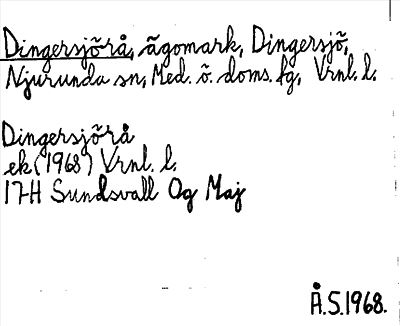 Dingersjörå, ägomark, Dingersjö,
Njurunda sn, Med. ö. doms. fg, Vrnl. l.
Dingersjörå
ek (1968) Vrnl. l.
17H Sundsvall Og Maj
Å.S.1968.